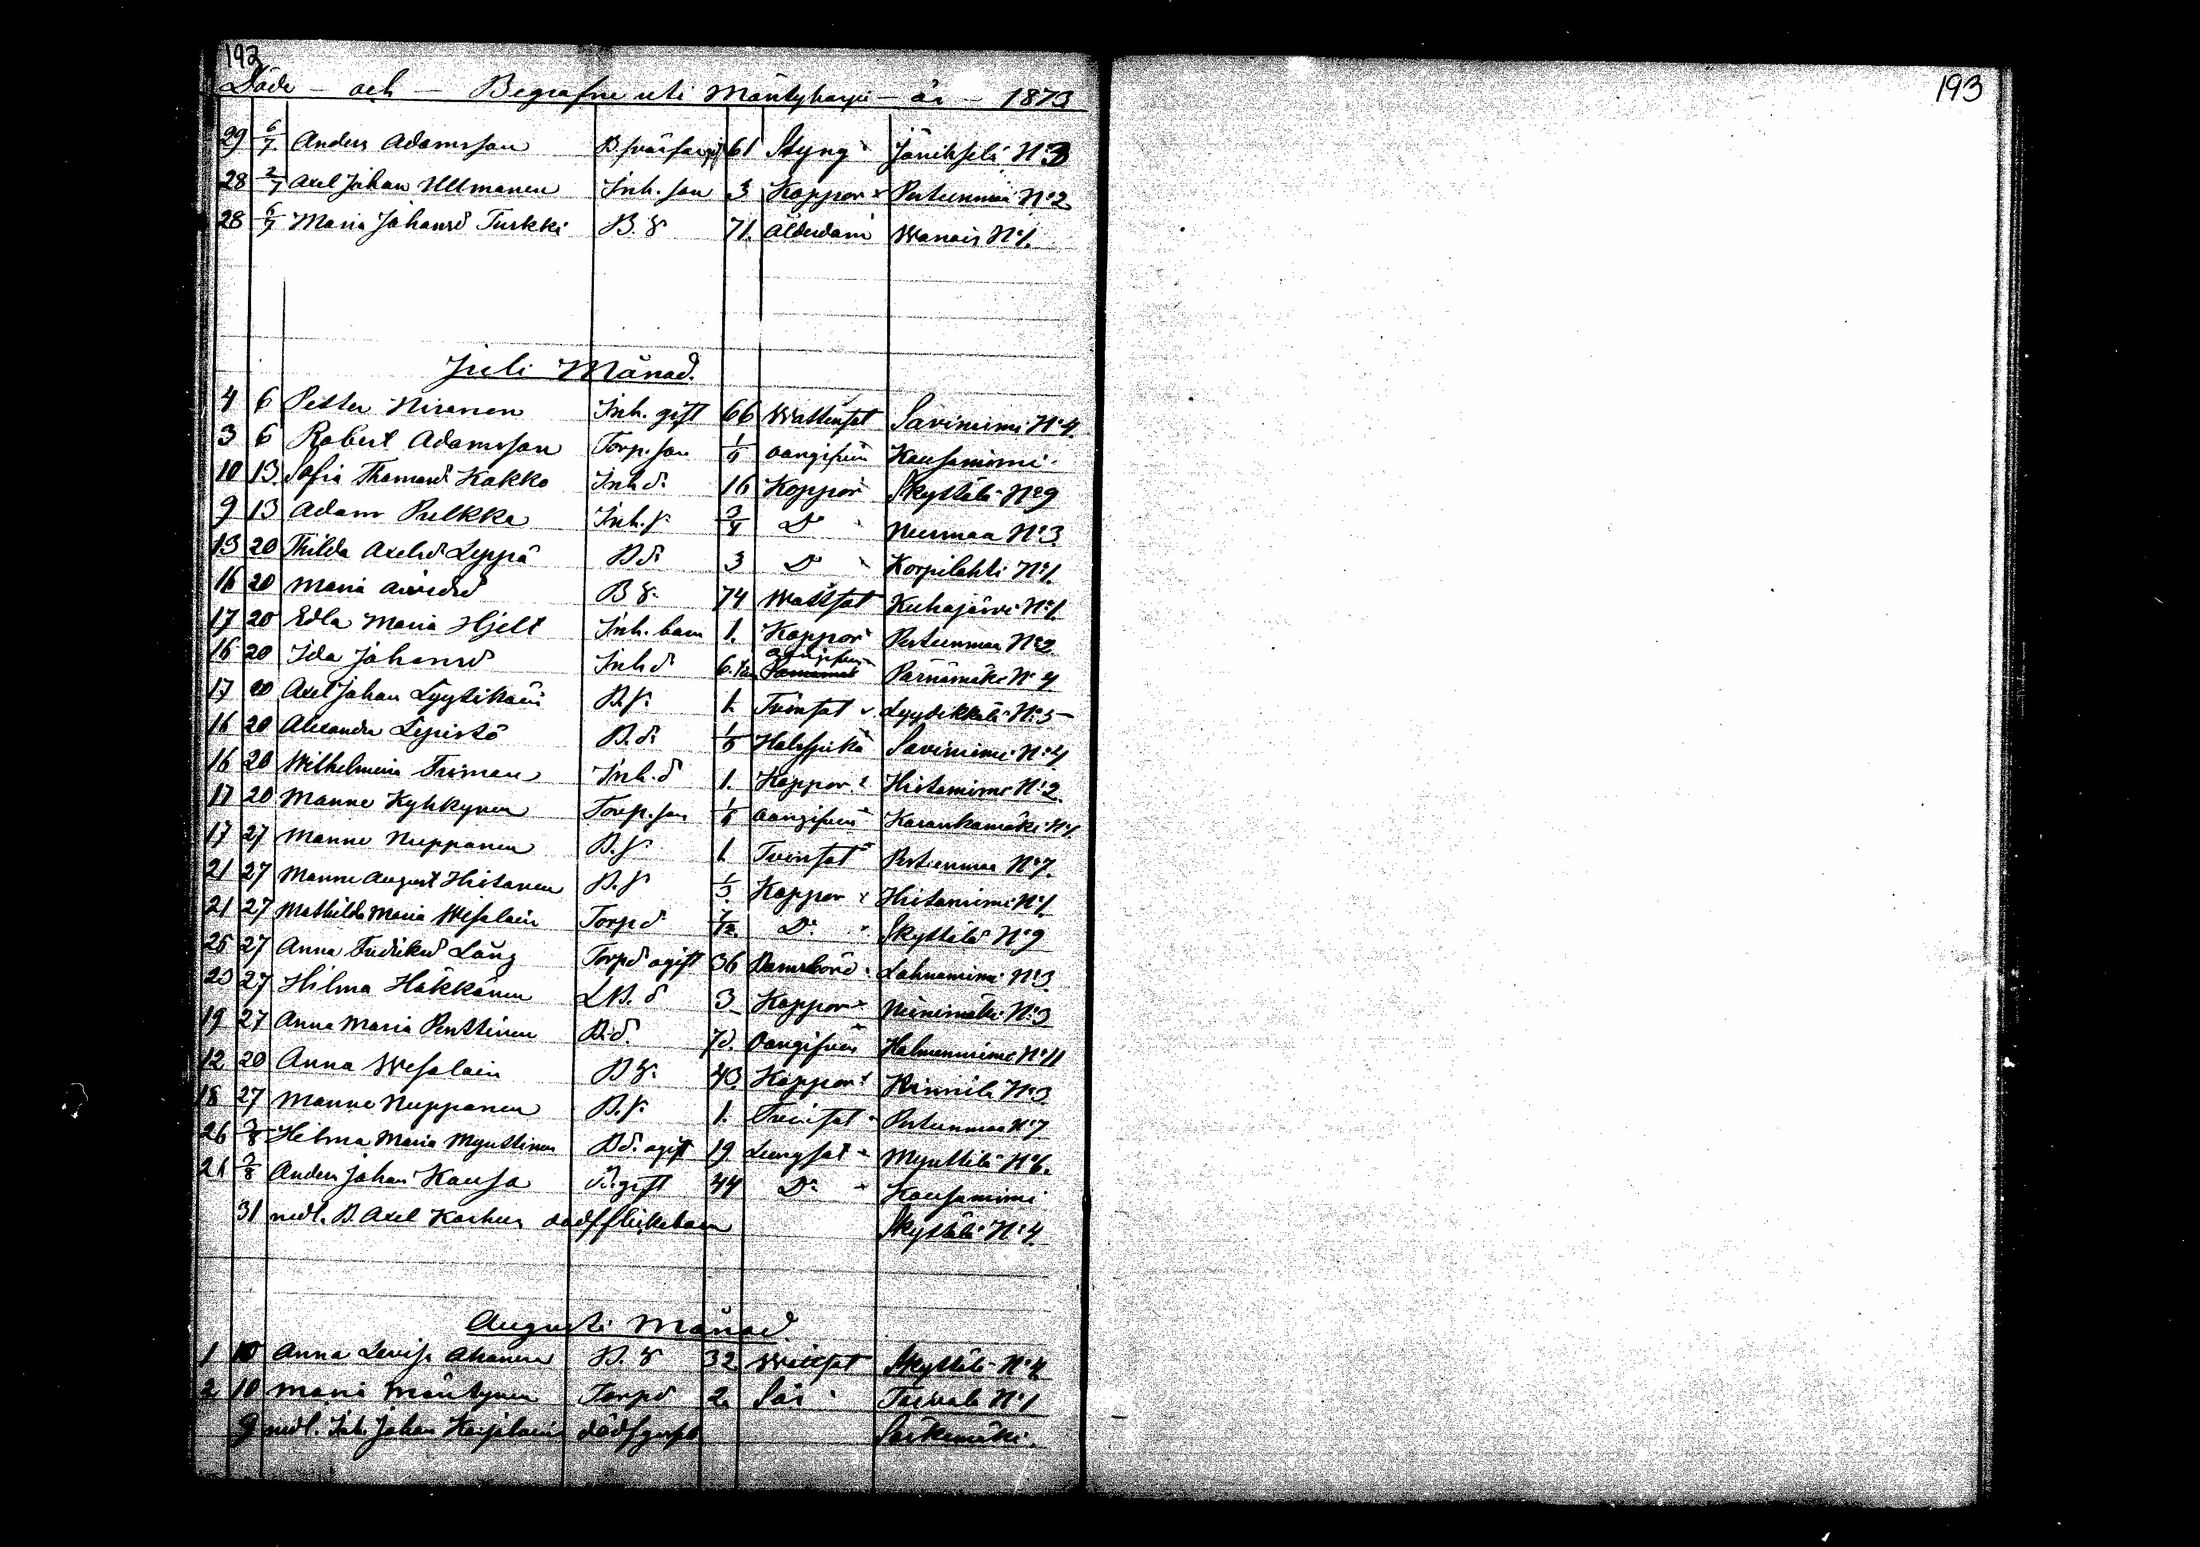 192
193
Döde - och - Begrafne uti Mäntyharju - år - 1873
29 6/7 Anders Adamsson B. svärfar gift 61 Styng Jänikselä N:3
28 2/7 Axel Johan Ullmanen Inh. son 3 Koppor Pertunmaa N:2
28 6/7 Maria Johansd Turkki B. E 71. Ålderdom Wanais N:1.
Juli Månad.
4 6 Petter Hirvonen Inh. gift 66 Wattusot Saviniemi N:4.
3 6 Robert Adamsson Torp. son oangifven Kousaniemi
10 13 Sofia Thomasd Kokko Inh d. 16 Koppor Skyttälä N:9
9 13 Adam Pulkka Inh. s. 3/4 D:o Nurmaa N:3.
13 20 Thilda Axelsd Leppä B d. 3 D:o Korpilahti N:1.
16 20 Maria B E. 74 Wattsot Kuhajärvi N:1.
17 20 Edla Maria Hjelt Inh. barn 1. Koppor Pertunmaa N:2.
16 20 Ida Johansd Inh d 6. oangifven Pärnämäki N:4
17 20 Axel Johan Lyytikäin B. s. 1. Tvinsot Lyydikkälä N:5
16 20 Alexandra Lepistö B. d. Halsflusså Saviniemi N:4
16 20 Wilhelmina Trimonen Inh. d 1. Koppor Hietaniemi N:2.
17 20 Manne Kyhkynen Torp. son oangifven Karankamäki N:1.
17 27 Manne Nuppanen B. s. 1. Tvinsot Pertunmaa N:7.
21 27 Manne August Hietanen B. s. Koppor Hietaniemi N:1.
21 27 Mathilda Maria Wesalain Torp d 7/12. D:o Skyttälä N:9
25 27 Anna Fredriksd Lång Torp d ogift 36 Barnsbörd Lahnaniemi N:3.
23 27 Hilma Häkkänen L B. d 3 Koppor Niinimäki N:3
19 27 Anna Maria Penttinen B. d. 7 d. Oangifven Halmenniemi N:11
12 20 Anna Wesalain B E. 43 Koppor Kinnilä N:3.
18 27 Manne Nuppanen B. s. 1. Tvinsot Pertunmaa N:7
26 3/8 Hilma Maria Mynttinen B d. ogift 19 Lungsot Mynttilä N:6.
21 3/8 Anders Johan Kousa B. gift 44 D:o Kousaniemi
31 nedl. B. Axel Korhus dödf flickebarn Skyttälä N:4.
Augusti Månad.
1 10 Anna Lovisa Ahonen B. E 32 Wattsot Skyttälä N:4
2 10 Maria Mäntynen Torp d 2. Sår Toivola N:1
9 nedl. Inh. Johan Karjalain dödf gosseb Särkemäki.